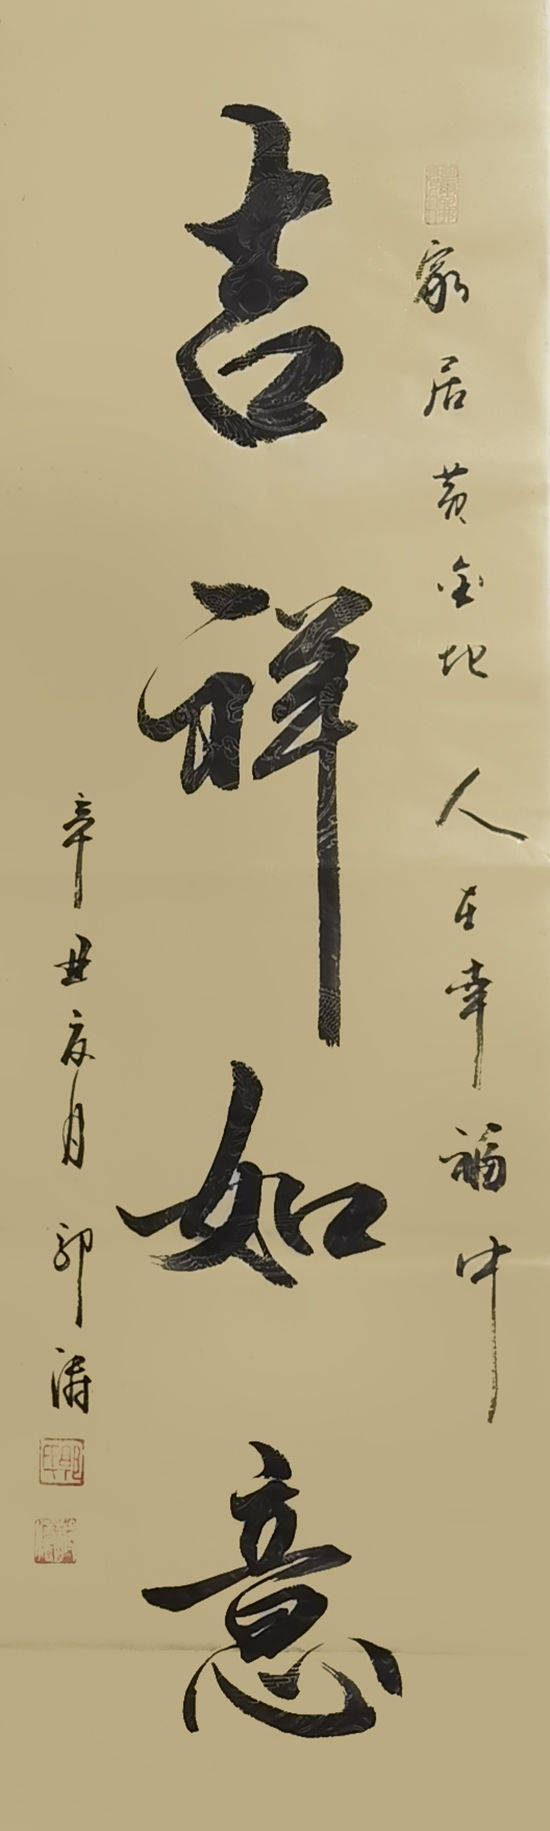 家居黄金地 人在幸福中
吉祥如意
辛丑亥月 郭涛